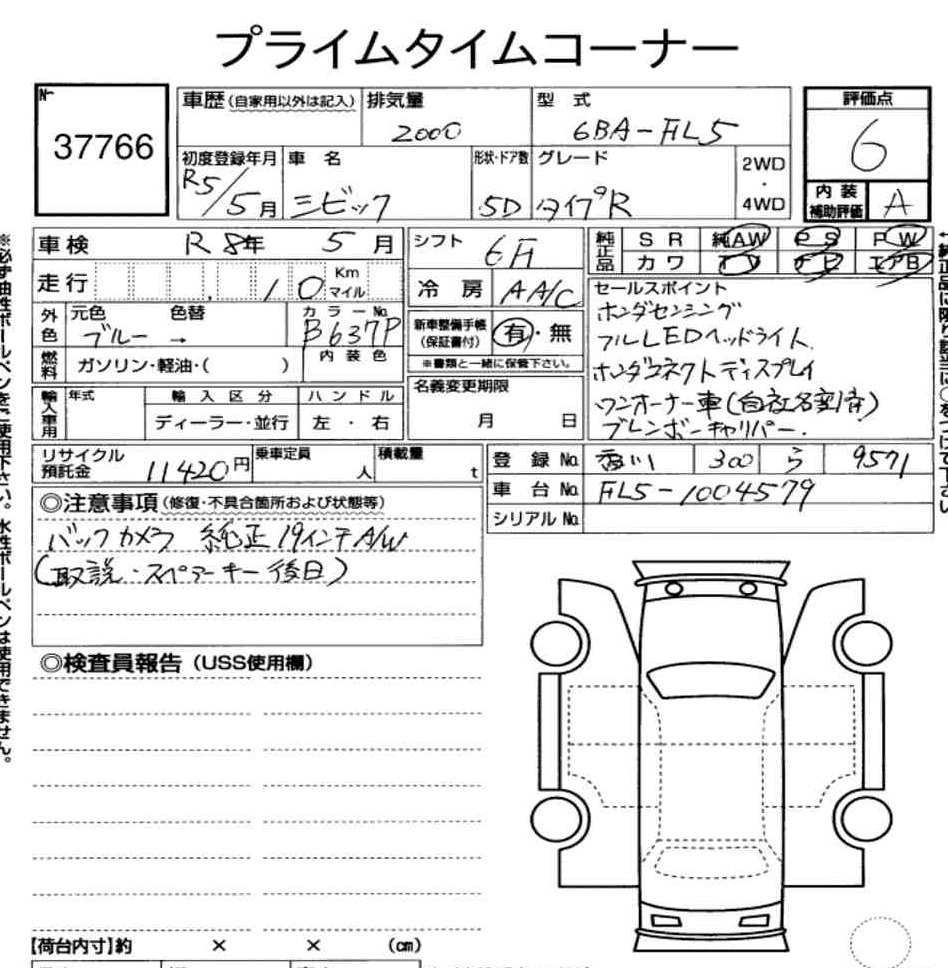 プライムタイムコーナー
№
37766
車歴(自家用以外は記入) 排気量 型 式 評価点
2000 6BA-FL5 6
初度登録年月 車 名 形状・ドア数 グレード 2WD
・
4WD
R5/5月 シビック 5D タイプR
内 装
補助評価 A
車検 R 8年 5月 シフト 6F 純正品 S R 純AW P S P W
カワ T V ナビ エアB
走行 10 Km
マイル 冷 房 AA/C セールスポイント
外色 元色 色替 カラーNo.
ブルー → B637P
新車整備手帳
(保証書付) 有・無
※書類と一緒に保管下さい。
ホンダセンシング
フルLEDヘッドライト
ホンダコネクトディスプレイ
ワンオーナー車(自社名変済)
ブレンボーキャリパー.
燃料 ガソリン・軽油・( ) 内 装 色
名義変更期限
月 日
輸入車用 年式 輸 入 区 分 ハ ン ド ル
ディーラー・並行 左 ・ 右
リサイクル
預託金 11420円 乗車定員 人 積載量 t
登 録 No. 香川 300 ら 9571
車 台 No. FL5-1004579
シリアル No.
◎注意事項(修復・不具合箇所および状態等)
バックカメラ 純正19インチA/W
(取説・スペアーキー後日)
◎検査員報告(USS使用欄)
【荷台内寸】約 × × (cm)
※必ず油性ボールペンをご使用下さい。水性ボールペンは使用できません。